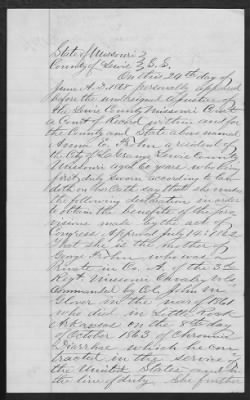 State of Missouri }
County of Lewis } S.S.
On this 24th day of
June A.D. 1885 personally appeared
before the undersigned a Justice of
the Lewis County Missouri
a Court of Record within and for
the County and State above named
Annie E. a resident of
the City of LaGrange Lewis County
Missouri aged 62 years who being
first duly sworn according to law
doth on her oath say that she makes
the following declaration in order
to obtain the benefits of the pro
visions made by the act of
Congress Approved July 14th 1862
That she is the mother of
George who was a
Private in Co. A of the 3rd
Regt Missouri Cavalry Vols
Commanded by Col. John M.
Glover in the war of 1861
who died in Little Rock
Arkansas on the 8th day
of October 1863 of Chronic
Diarrhea which he con
tracted in the service of
the United States and in
the line of duty. She further